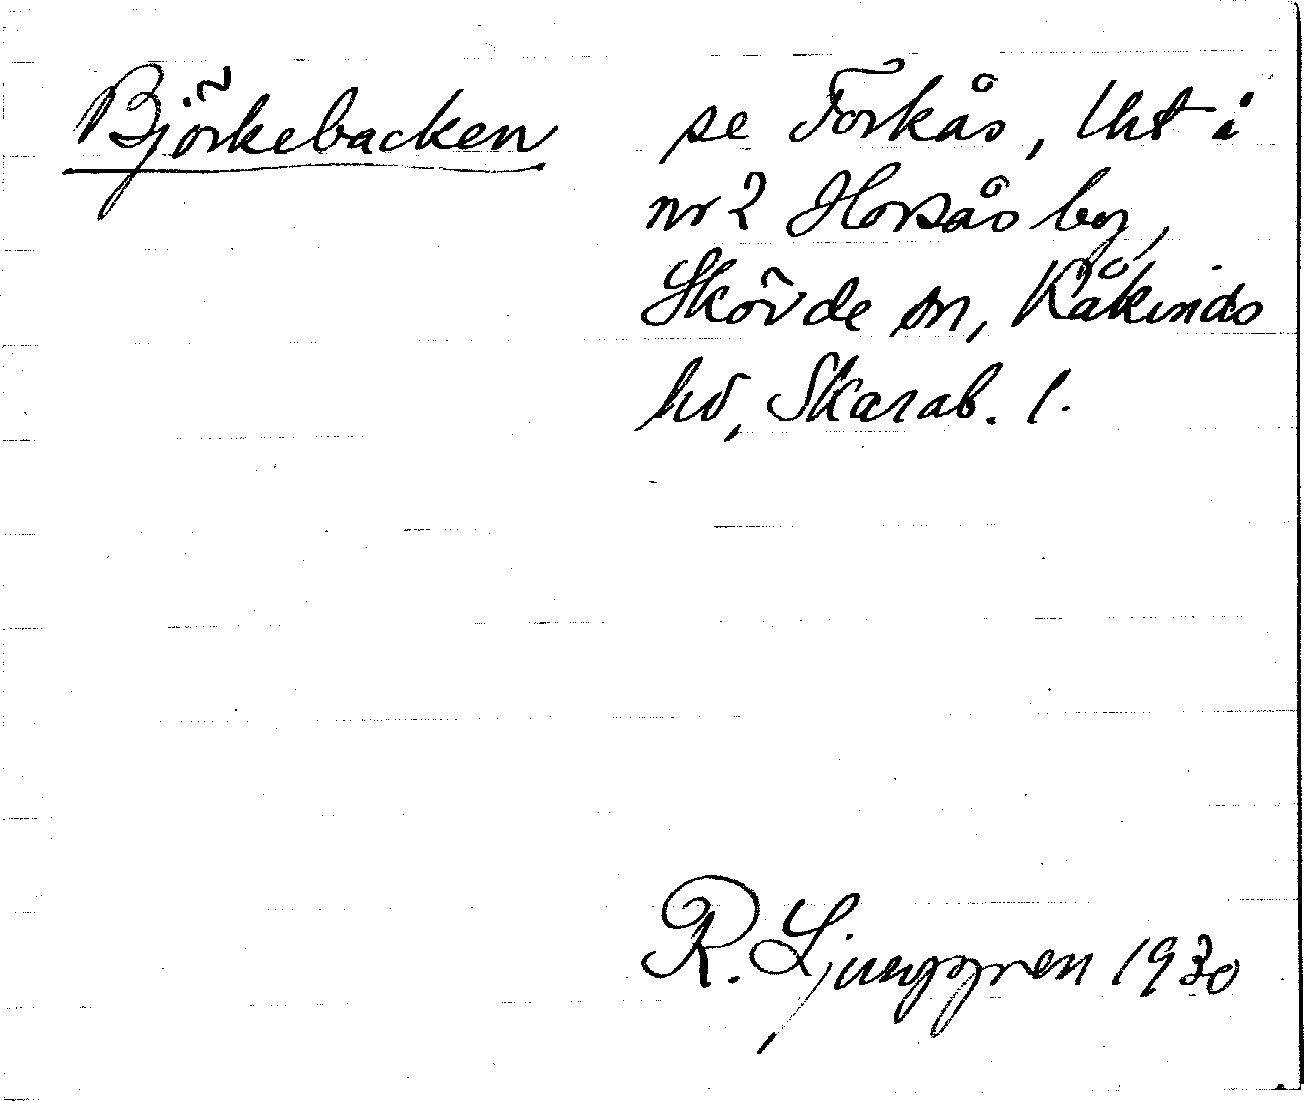 Björkebacken se Forkås, lht i
nr 2 Horsås by,
Skövde sn, Kåkinds
hd, Skarab. l.
R. Ljunggren 1930